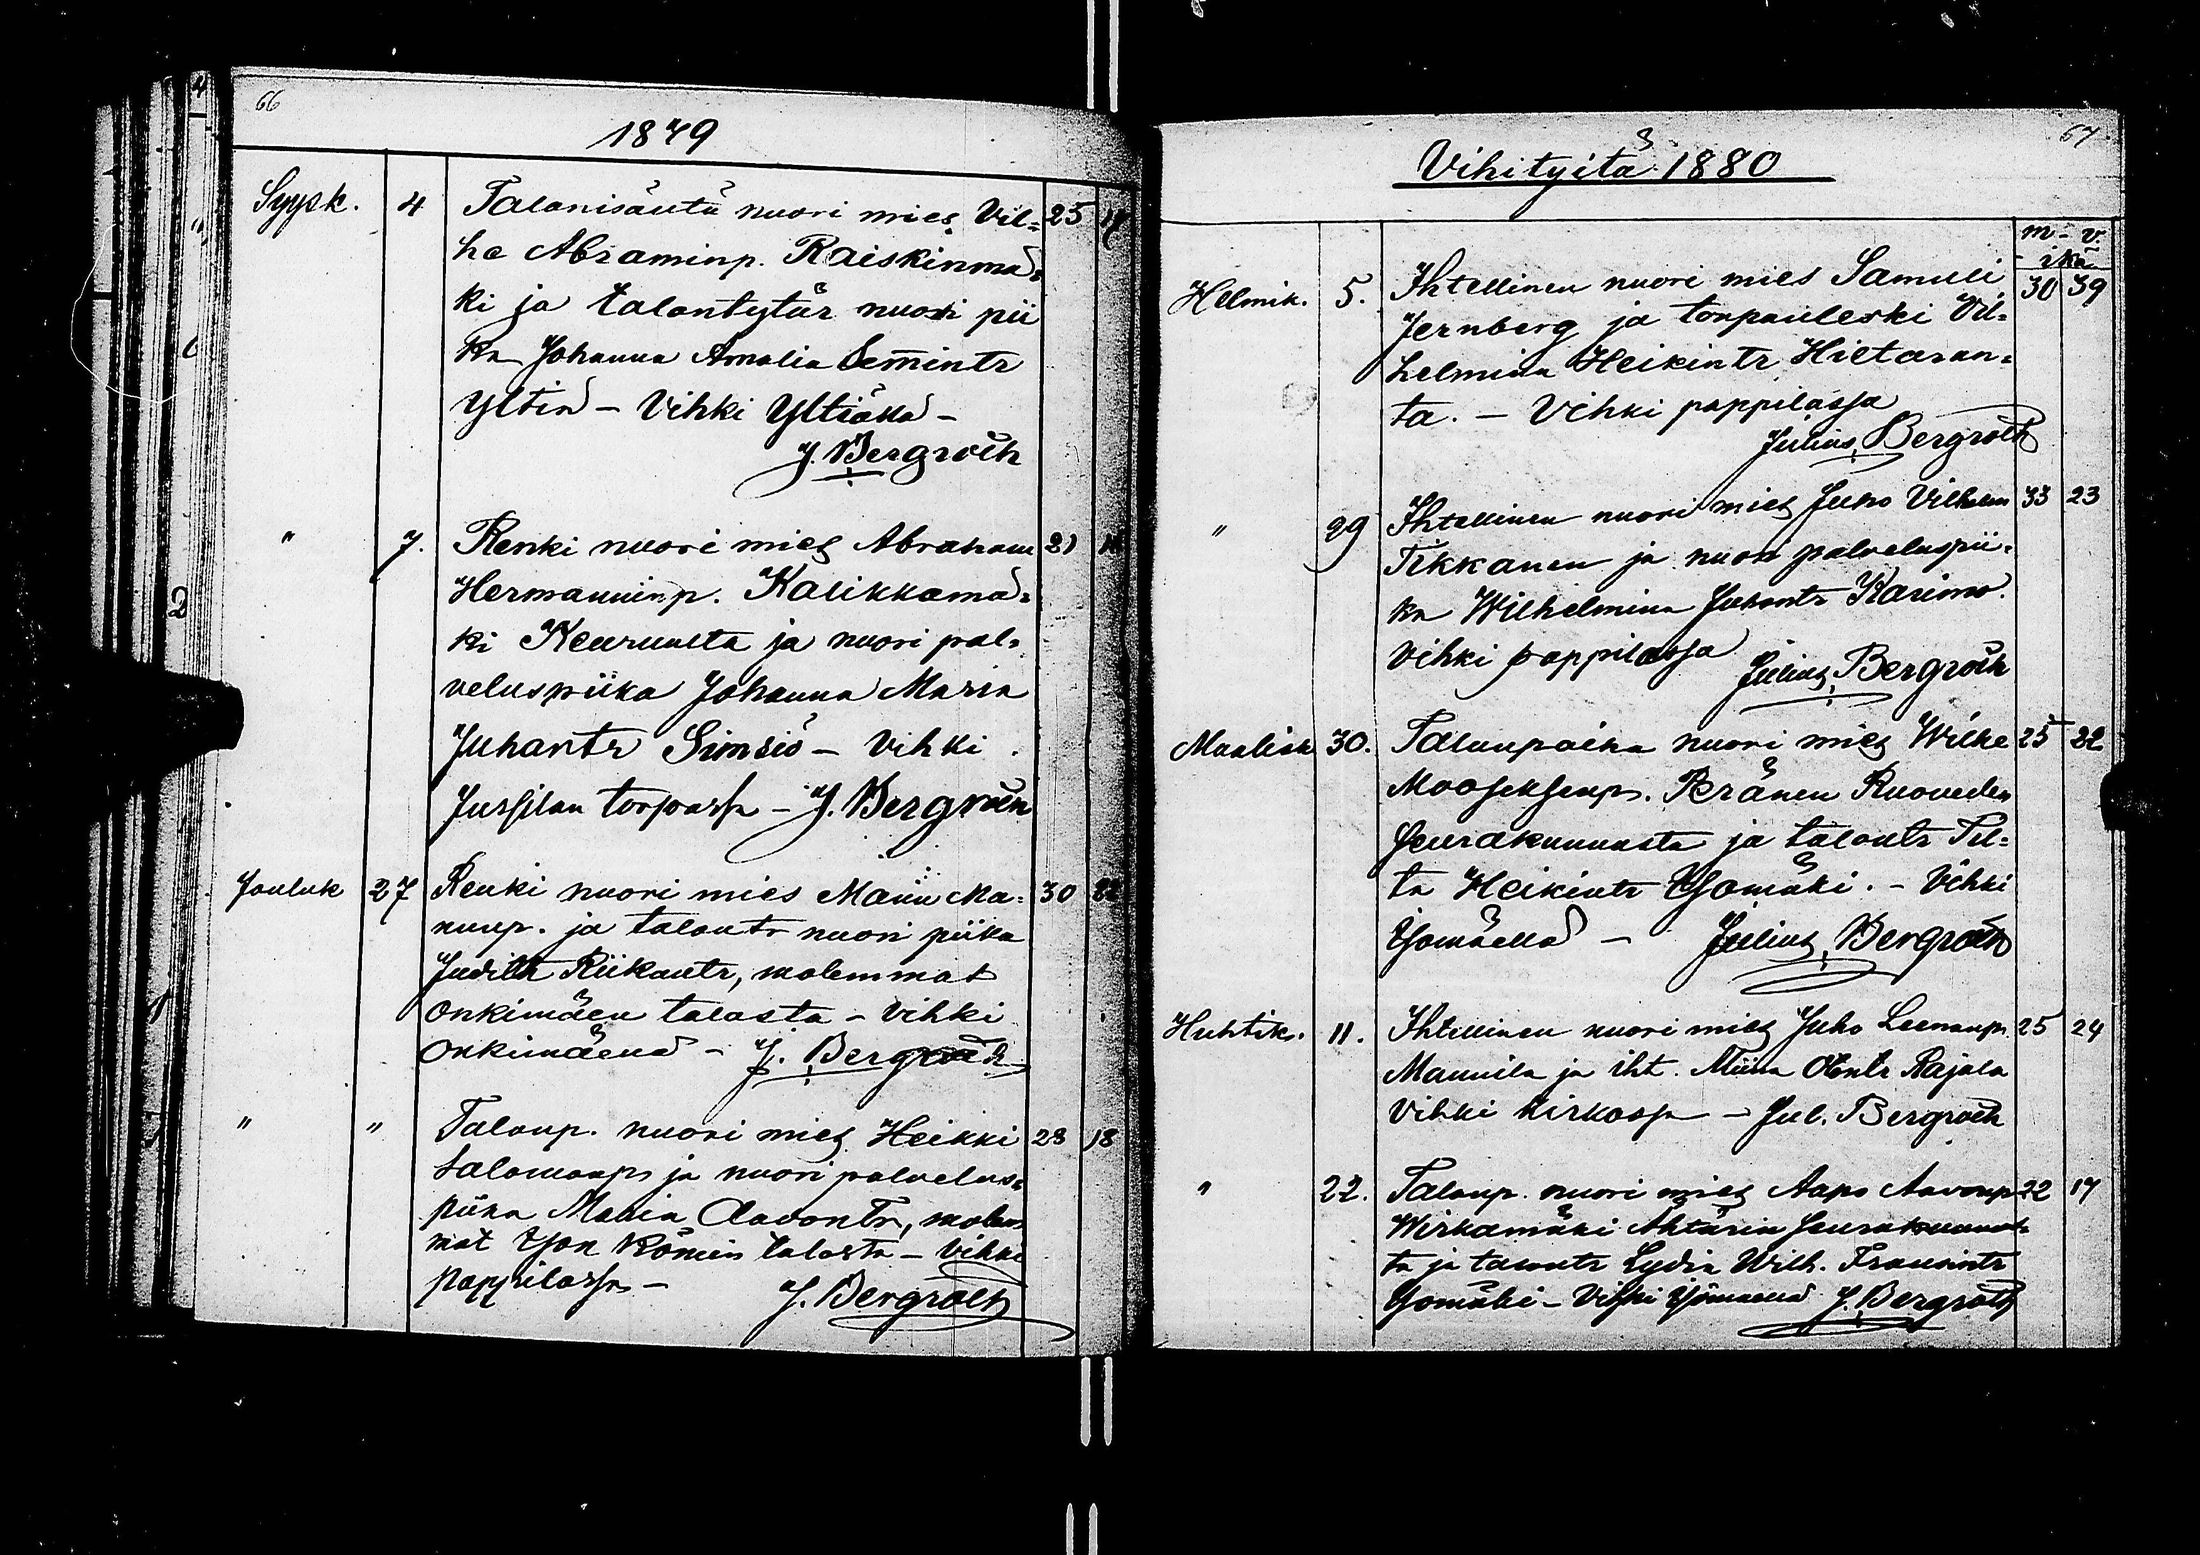 66
1879
Syysk. 4 Talonisäntä nuori mies Vil= 25
he Abraminp. Raiskinmä=
ki ja talontytär nuori pii
ka Johanna Amalia
Yltiä - Vihki Yltiällä -
J. Bergroth
" 7. Renki nuori mies Abraham 21
Hermanninp. Kalikkamä=
ki Keuruulta ja nuori pal=
veluspiika Johanna Maria
Juhantr Simsiö - Vihki
Jussilan torpassa - J. Bergroth
Jouluk 27 Renki nuori mies Mannu Ma= 30 22
nunp. ja talontr nuori piika
Judith Riikantr, molemmat
Onkimäen talosta - Vihki
Onkimäellä - J. Bergroth
" " Talonp. nuori mies Heikki 28 18
Salomonp. ja nuori palvelus=
piika Maria Aavontr, molem
mat talosta - Vihki
pappilassa - J. Bergroth
67
Vihityitä 1880
m - v.
ikä
Helmik. 5. Ihtellinen nuori mies Samuli 30 39
Jernberg ja torpanleski Vil=
helmina Heikintr Hietaran=
ta. - Vihki pappilassa
Julius Bergroth
" 29 Ihtellinen nuori mies Juho Vilhelm 33 23
Tikkanen ja nuori palveluspii=
ka Wilhelmina Juhontr Karimo.
Vihki pappilassa Julius Bergroth
Maalisk 30. Talonpoika nuori mies Wilhe 25 22
Mooseksenp. Peränen Ruoveden
seurakunnasta ja talontr Til=
ta Heikintr Yjomäki. - Vihki
Yjomäellä - Julius Bergroth
Huhtik. 11. Ihtellinen nuori mies Juho Leenanp. 25 24
Mannila ja iht. Miina Rajala
Vihki kirkossa - Jul. Bergroth
" 22. Talonp. nuori mies Aapo Aavonp 22 17
Wirkamäki Ähtärin seurakunnas=
ta ja talontr Lydia Wilh. Fransintr
Yjomäki - Vihki Yjomäellä J. Bergroth